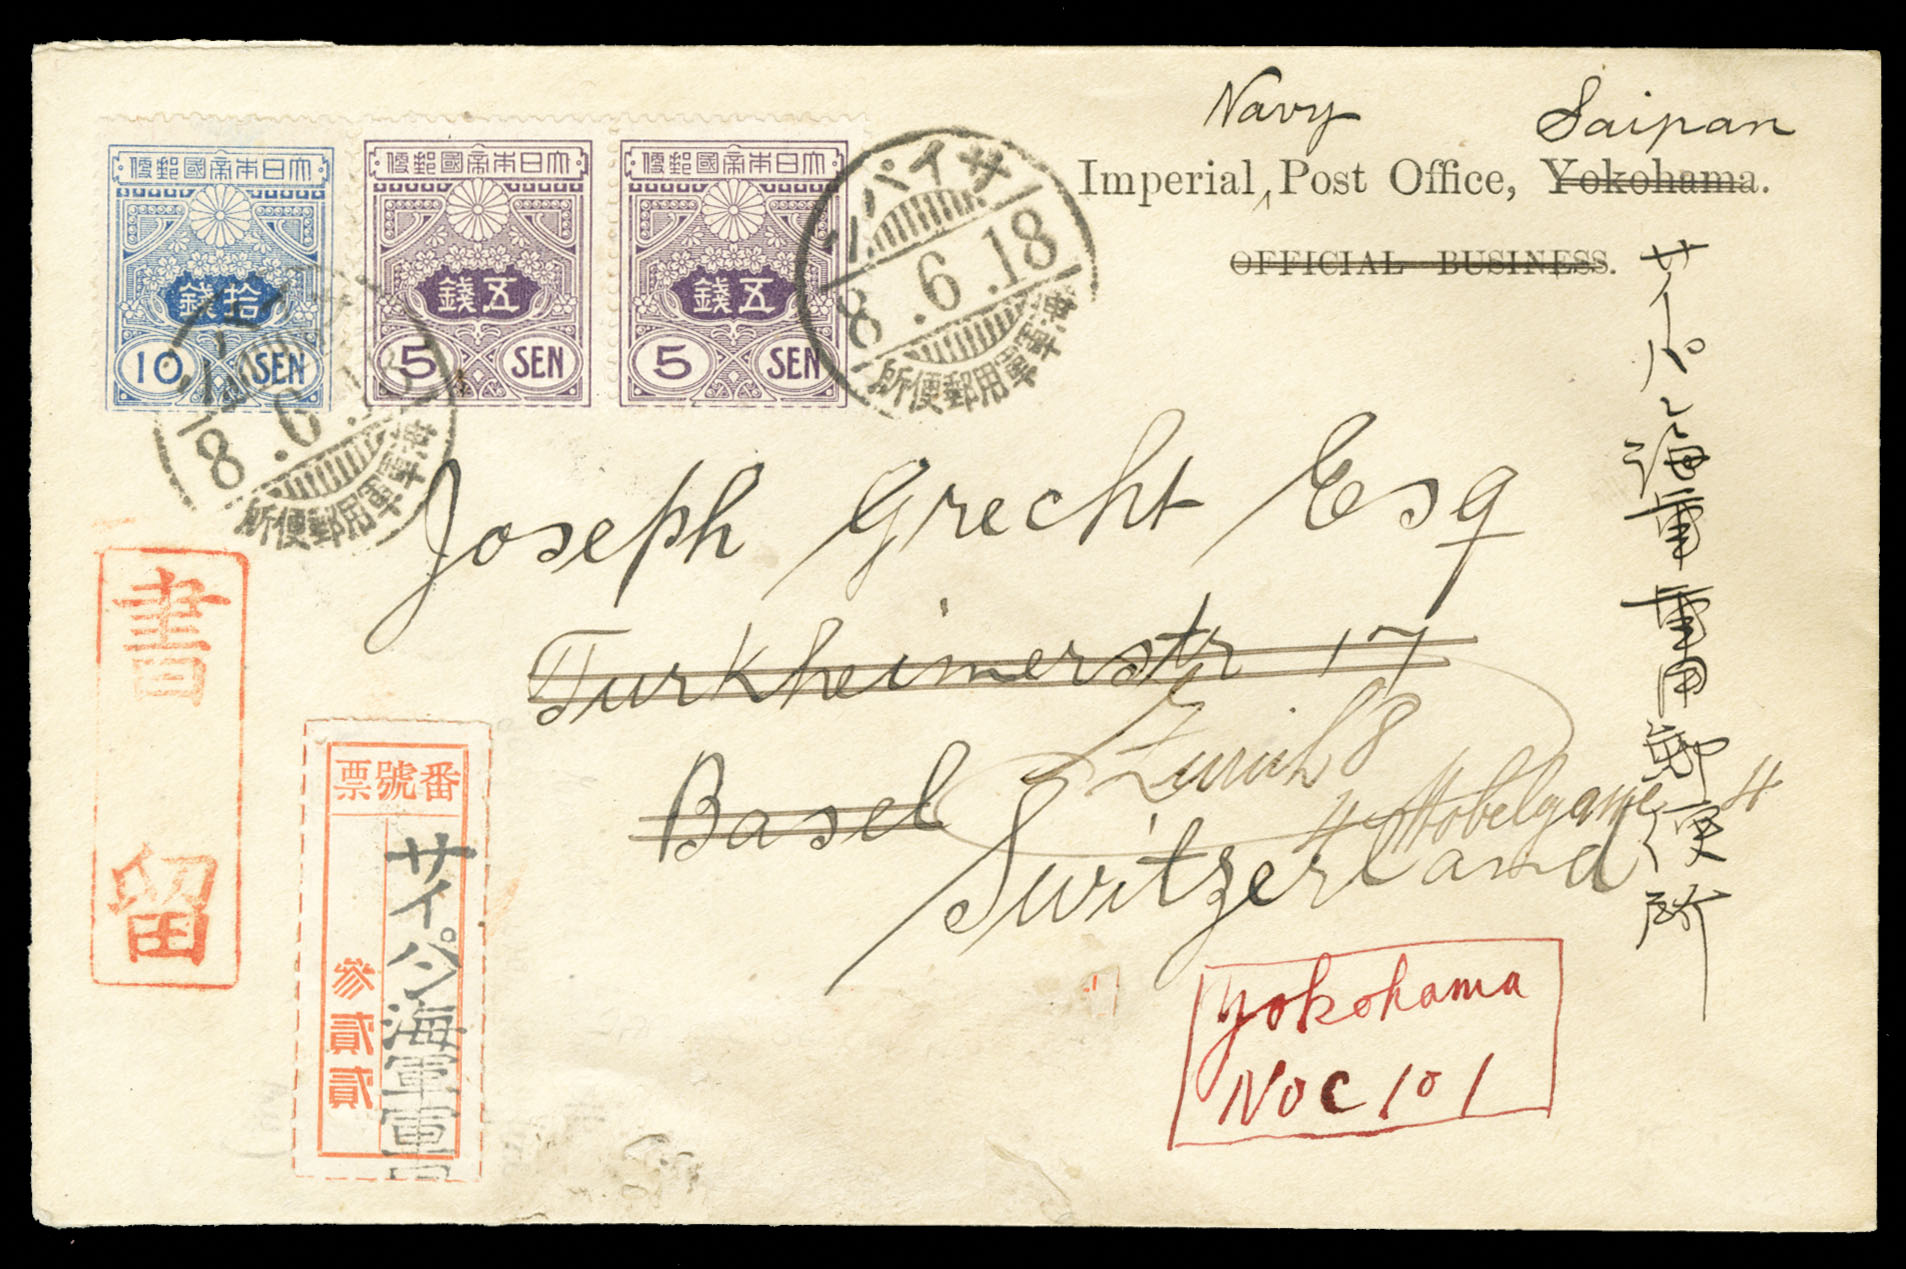 Navy Saipan
Imperial, Post Office, Yokohama.
OFFICIAL BUSINESS.
大日本帝國郵便
拾錢
10 SEN
大日本帝國郵便
五錢
5 SEN
大日本帝國郵便
五錢
5 SEN
サイパン
8.6.18
海軍軍用郵便所
8.6.18
海軍軍用郵便所
サイパン海軍軍用郵便所
Joseph Grecht Esq
Turkheimerstr 17
Zürich 8
Basel
4
Switzerland
書留
番號票
サイパン海軍軍
參貳貳
Yokohama
No C 101